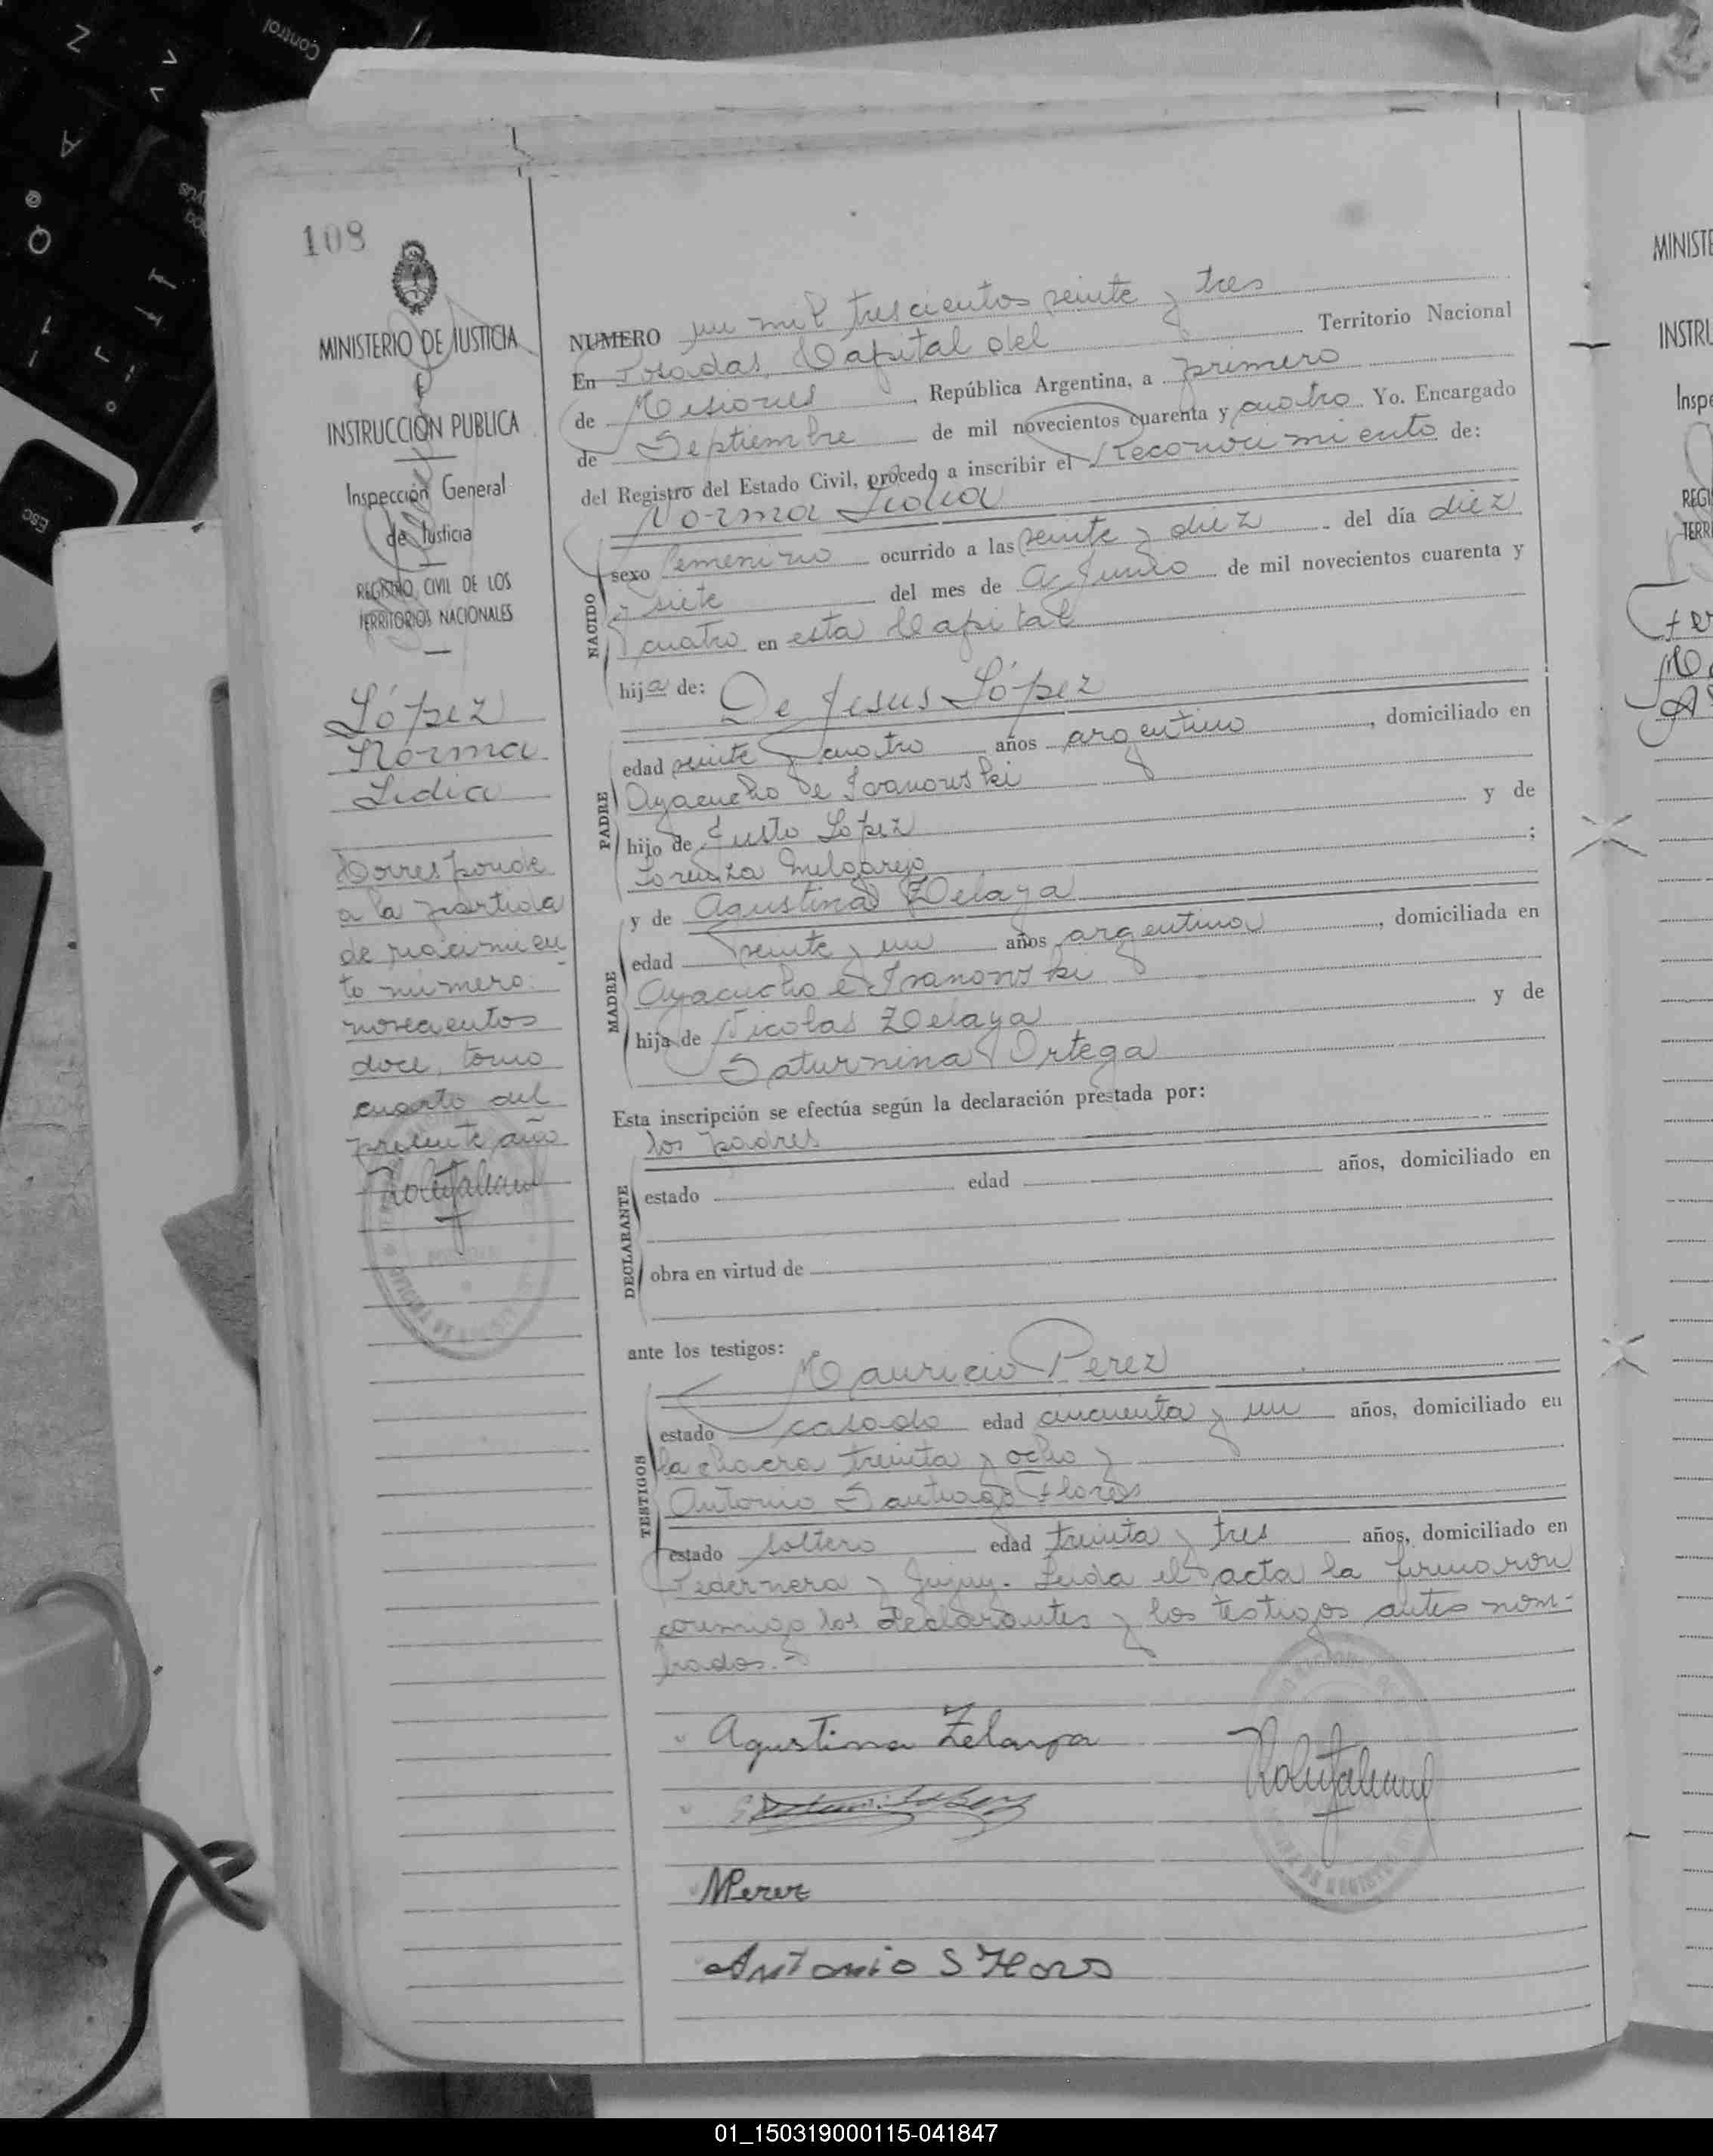 108
MINISTERIO DE JUSTICIA
E
INSTRUCCIÓN PUBLICA
Inspección General
de Justicia
REGISTRO CIVIL DE LOS
TERRITORIOS NACIONALES
López
Norma
Lidia
Corresponde
a la partida
de nacimien
to número:
novecientos
doce, tomo
cuarto del
presente año
NUMERO un mil trescientos veinte y tres
En Posadas, Capital del Territorio Nacional
de Misiones, República Argentina, a primero
de Septiembre de mil novecientos cuarenta y cuatro Yo. Encargado
del Registro del Estado Civil, procedo a inscribir el Reconocimiento de:
Norma Lidia
NACIDO
sexo femenino ocurrido a las veinte y diez del día diez
y siete del mes de Junio de mil novecientos cuarenta y
cuatro en esta Capital
hija de: De Jesus López
PADRE
edad veinte y cuatro años argentino, domiciliado en
Ayacucho e Ivanowski
hijo de Justo López y de
Lorenza Melgarejo;
y de Agustina Zelaya
MADRE
edad veinte y un años argentina, domiciliada en
Ayacucho e Ivanowski
hija de Nicolas Zelaya y de
Saturnina Ortega
Esta inscripción se efectúa según la declaración prestada por:
los padres
DECLARANTE
estado edad años, domiciliado en
obra en virtud de
ante los testigos:
Mauricio Perez
TESTIGOS
estado casado edad cincuenta y un años, domiciliado en
la chacra treinta y ocho y
Antonio Santiago Flores
estado soltero edad treinta y tres años, domiciliado en
Pedernera y Jujuy. Leida el acta la firmaron
conmigo los declarantes y los testigos antes nom-
brados.-
Agustina Zelaya
MPerez
Antonio S Flores
MINISTE
INSTRU
Inspe
REGI
TERRI
Control
Esc
01_150319000115-041847